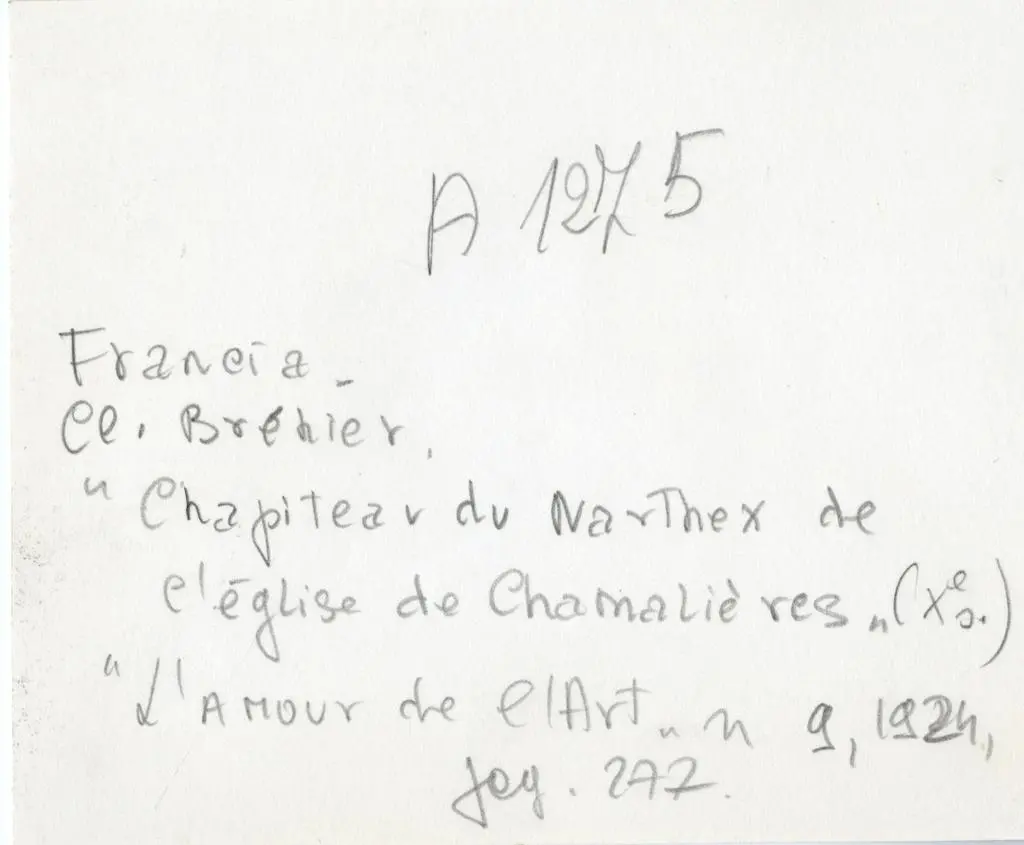 A 1275
Francia -
Cl. Bréhier,
"Chapiteau du Narthex de
l'église de Chamalières" (Xe s.)
"L'Amour de l'Art" n 9, 1924,
pag. 277.